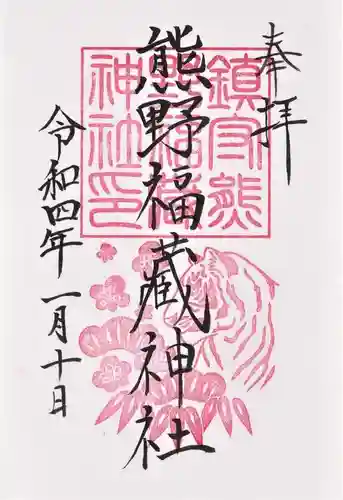 奉拝
熊野福藏神社
令和四年 一月十日
鎮守熊
野福藏
神社印